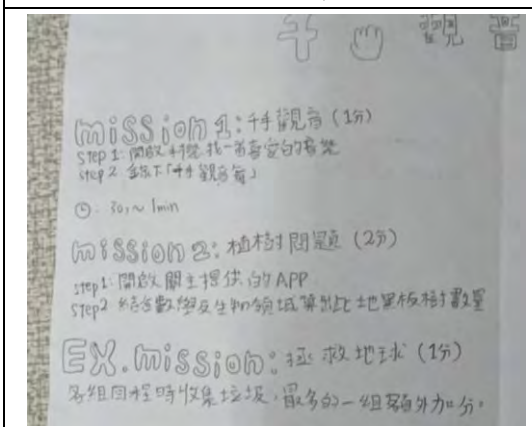 千手觀音
mission 1: 千手觀音 (1分)
step 1: 開啟利禮找一首喜愛的音樂
step 2: 錄下「千手觀音舞」
30s ~ 1min
mission 2: 植樹問題 (2分)
step1: 開啟關主提供的APP
step2 結合數學及生物領域算出此地黑板樹數量
EX. mission: 拯救地球 (1分)
各組回程時收集垃圾，最多的一組額外加分。